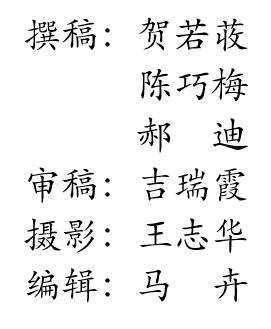 撰稿：贺若荍
陈巧梅
郝　迪
审稿：吉瑞霞
摄影：王志华
编辑：马　卉